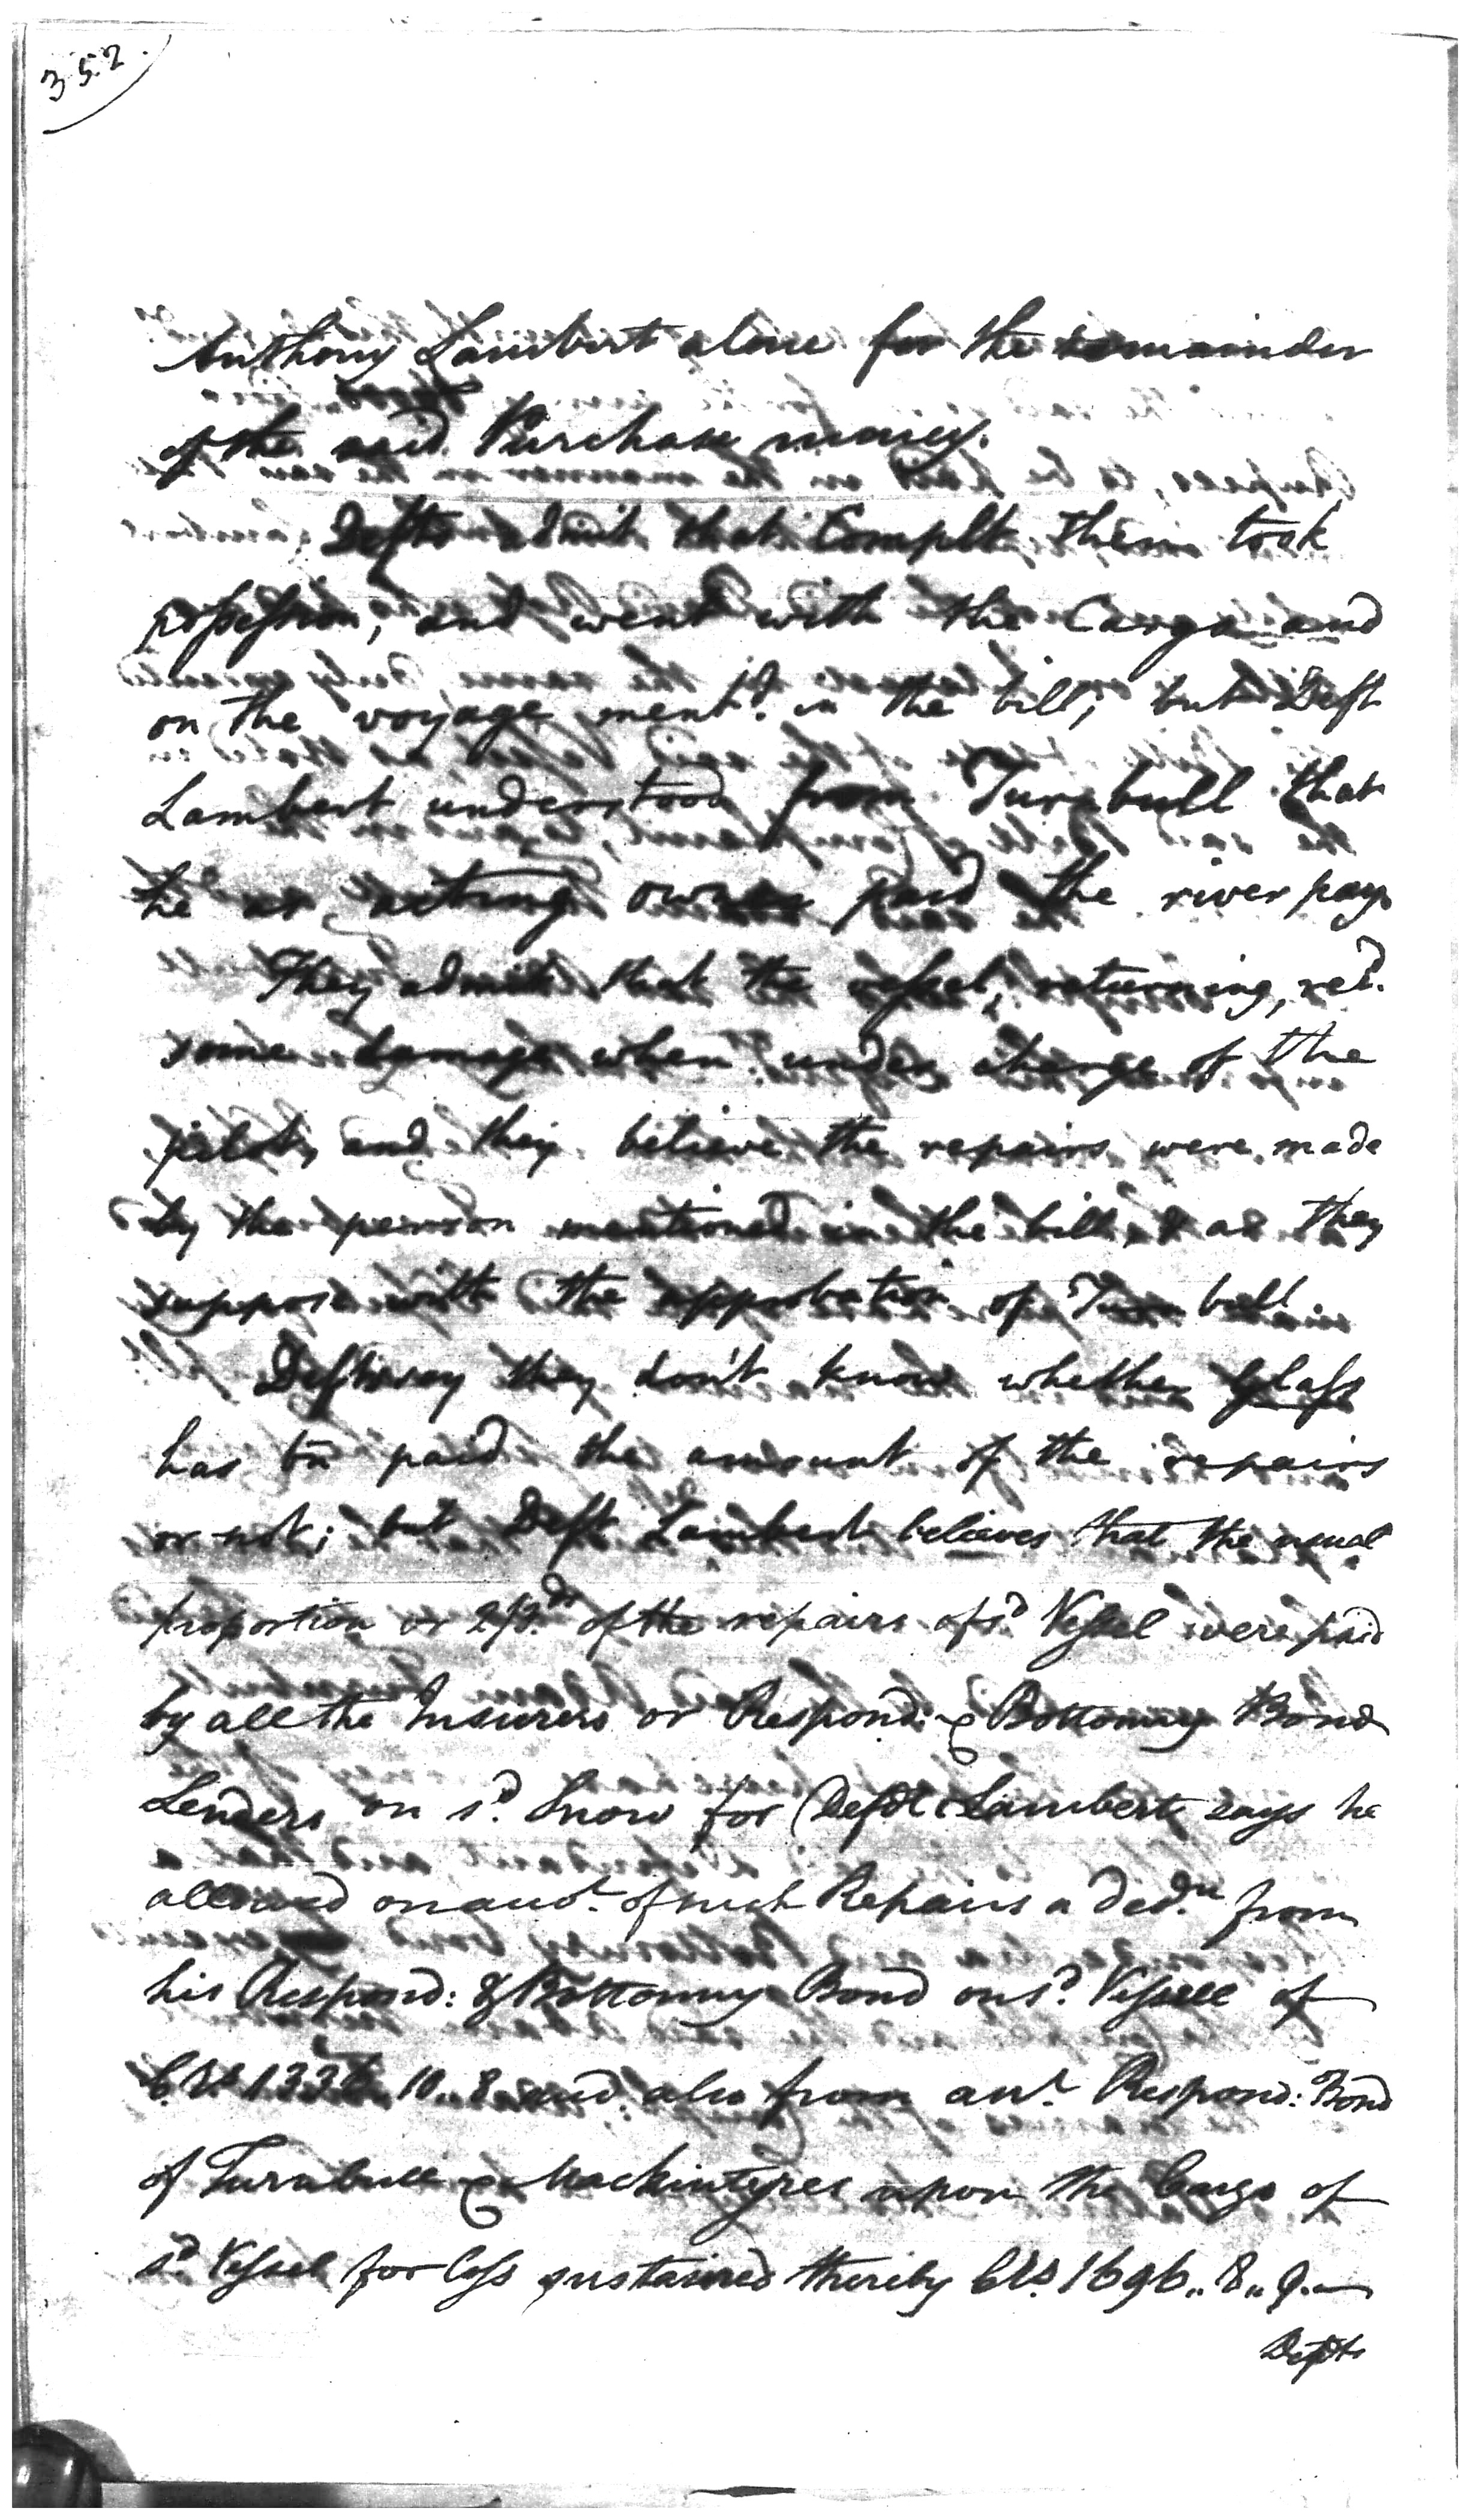 352.
Anthony Lambert alone for the remainder
of the said Purchase money.
Defts admit that Complt then took
possession, and went with the Cargo and
on the voyage ment.d in the bill; but Deft
Lambert understood from Turnbull that
he as acting owner paid the river pay.
They admit that the vessel, returning, rec.d
some damage when under charge of the
pilot, and they believe the repairs were made
by the person mentioned in the bill, & as they
suppose with the approbation of Turnbull.
Defts say they don't know whether Glass
has bn paid the amount of the repairs
or not; but Deft Lambert believes that the usual
proportion or 2/3.ds of the repairs of s.d Vessel were paid
by all the Insurers or Respond: & Bottomry Bond
Lenders on s.d Snow for Deft Lambert says he
allowed on acco.t of such Repairs a ded.n from
his Respond: & Bottomry Bond on s.d Vessell of
C.Rs 10.. 8 and also from an.r Respond: Bond
of Turnbull & Mackintyres upon the Cargo of
s.d Vessel for loss sustained thereby CRs. 1696.. 8.. 9.
Defts